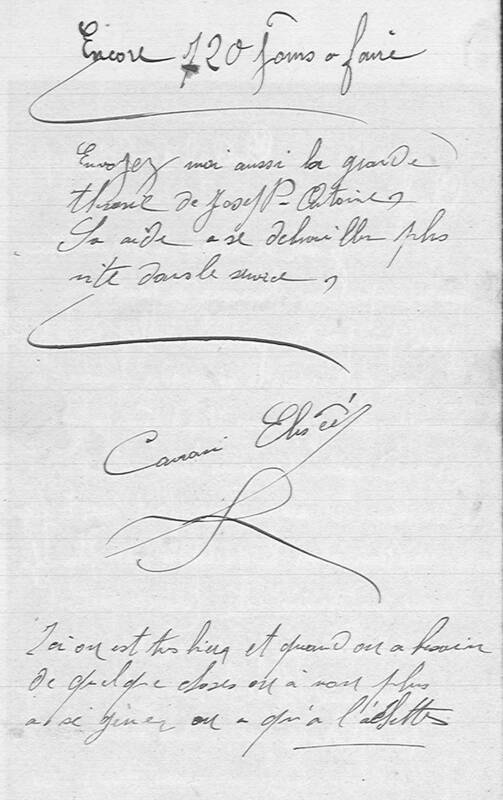 Encore 720 Jours a faire
Envoyez moi aussi la grande
theorie de Joseph-Antoine,
Sa aide a se debrouiller plus
vite dans le service,
Elisée
Ici on est tres bien et quand on a besoin
de quelque choses on à non plus
a se giner on a qu'a l'achetter